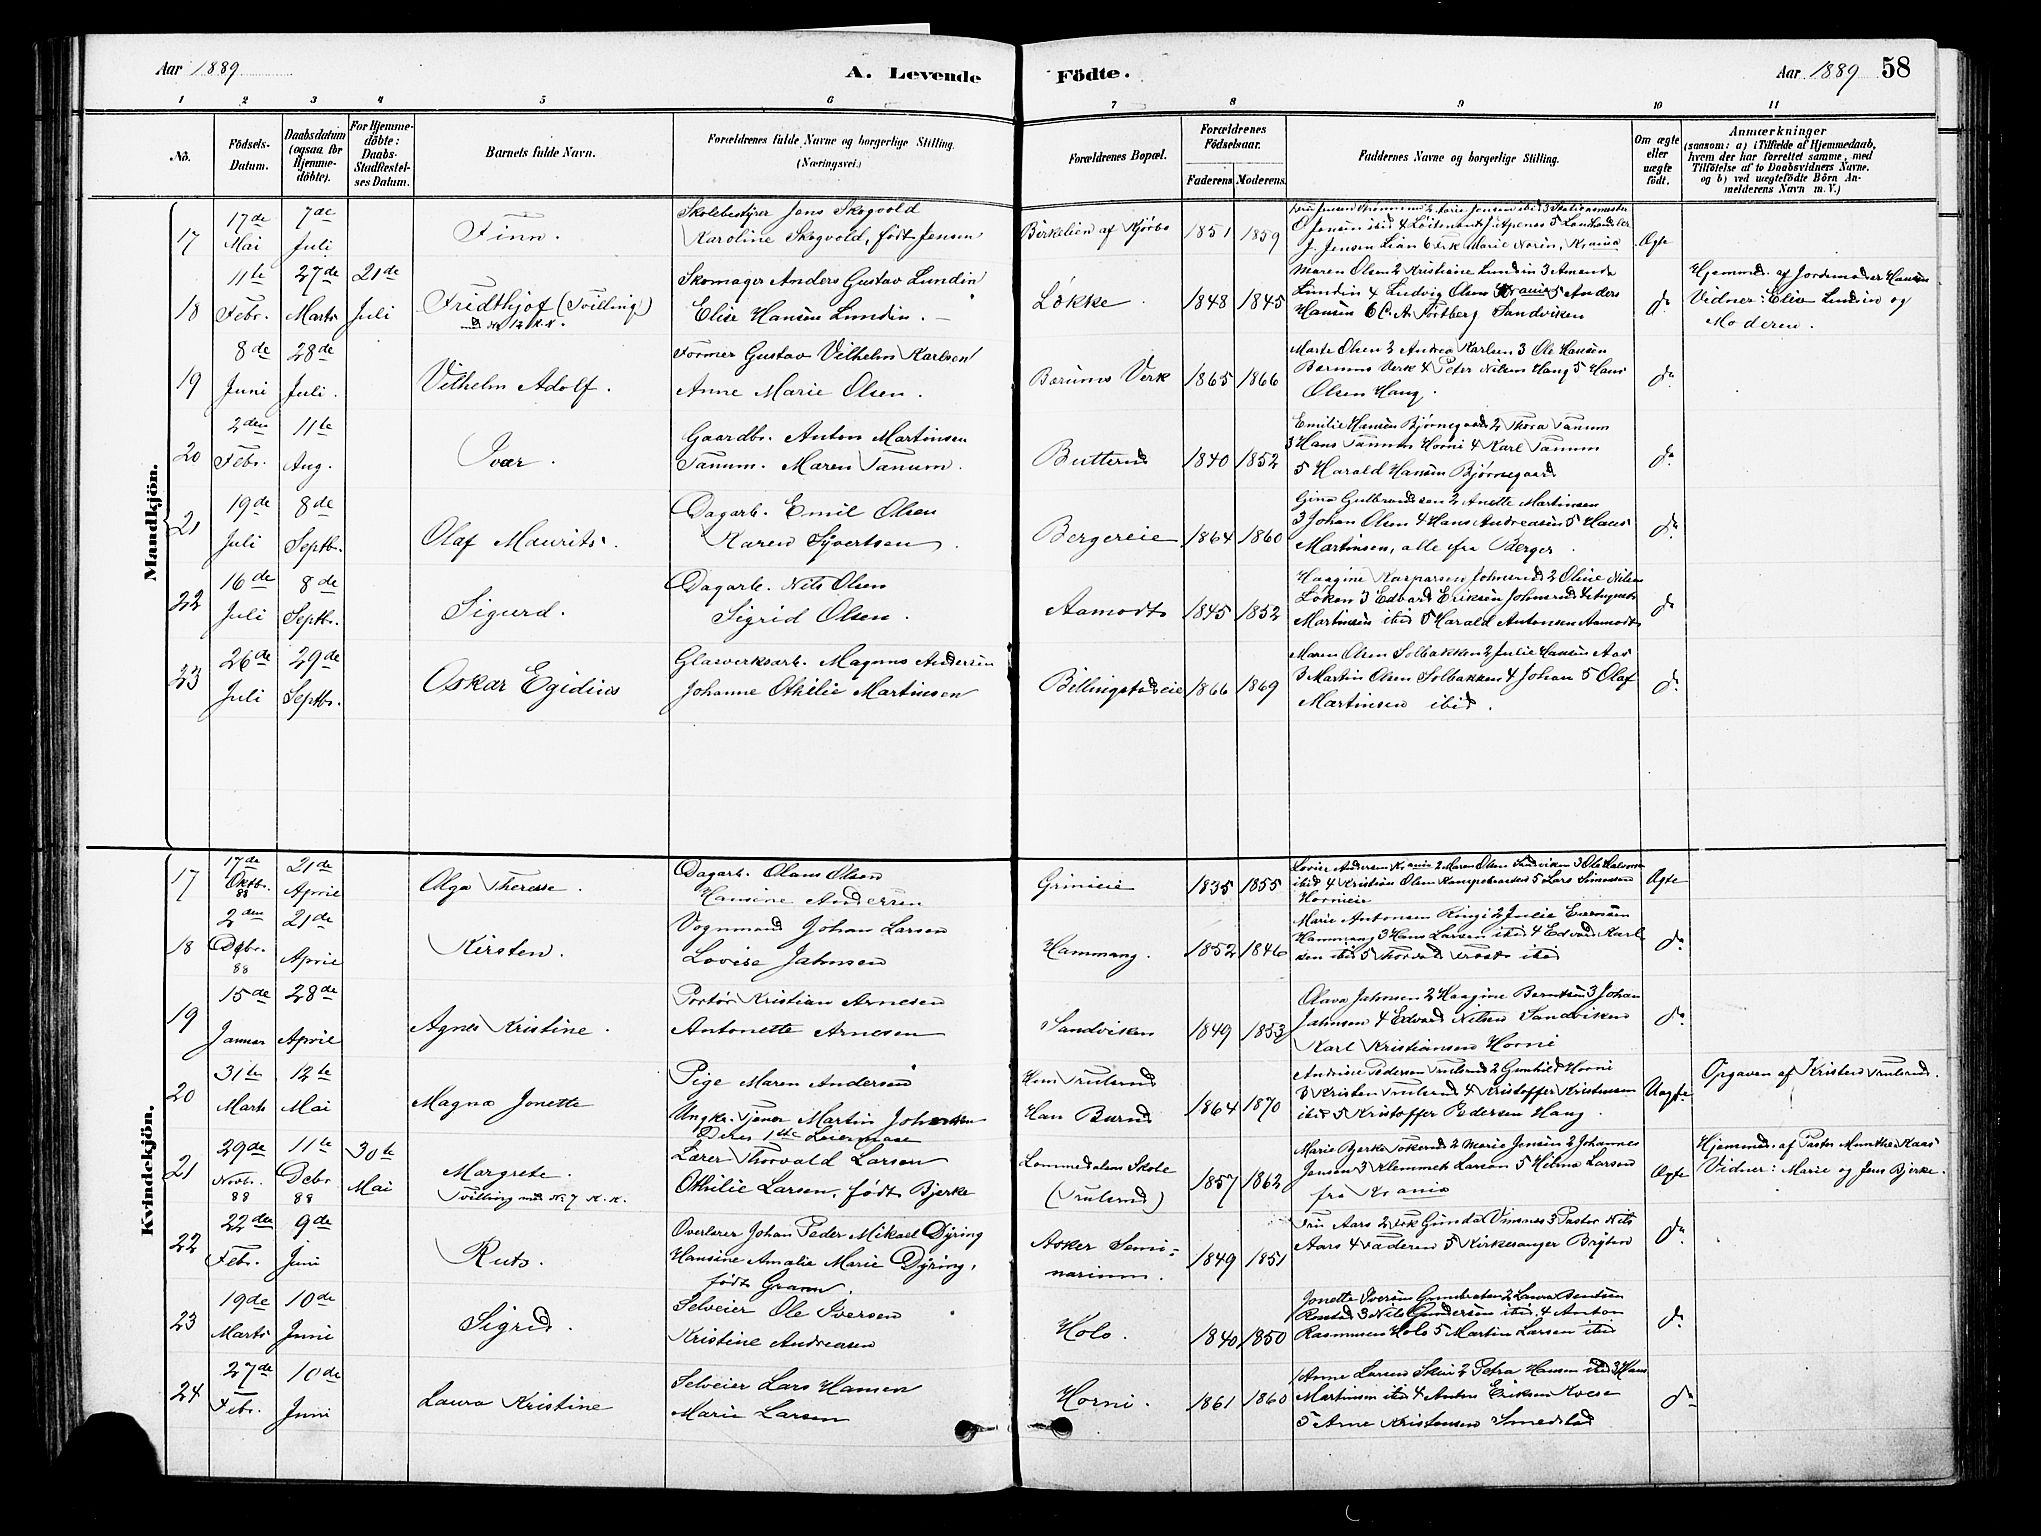 Aar 1889
A. Levende
Födte.
Aar 1889 58
1 2 3 4 5 6 7 8 9 10 11
No.
Födsels-Datum.
Daabsdatum (ogsaa for Hjemmedöbte).
For Hjemmedöbte: Daabs-Stadfæstelses Datum.
Barnets fulde Navn.
Forældrenes fulde Navne og borgerlige Stilling.
(Næringsvei.)
Forældrenes Bopæl.
Forældrenes Födselsaar.
Faderens. Moderens.
Faddernes Navne og borgerlige Stilling.
Om ægte eller uægte födt.
Anmærkninger
(saasom: a) i Tilfælde af Hjemmedaab,
hvem der har forrettet samme, med
Tilföielse af to Daabsvidners Navne.
og b) ved uægtefödte Börn Anmelderens Navn m. V.)
Mandkjön.
17 17de Mai 7de Juli Finn.
Skolebestyrer Jens Skogvold
Karoline Skogvold, født Jensen
Birkelien af Kjørbo 1851 1859
O Jensen ibid 4 Løitenant J. Apenes 5 Landhandler
J. Jensen Lian 6 Frk Marie Norin, Krania Ægte
18 11te Febr. 27de Marts 21de Juli Fridthjof (Tvilling)
Skomager Anders Gustav Lundin
Elise Hansen Lundin.
Løkke 1848 1845
Maren Olsen 2 Kristiane Lundin 3 Amanda
Lundin 4 Ludvig Olsen Krania 5 Anders
Hansen 6 C. A. Portberg Sandviken
do
Hjemmed. af Jordemoder Hansen
Vidner: Elise Lundin og
Moderen.
19 8de Juni 28de Juli. Vilhelm Adolf.
Former Gustav Vilhelm Karlsen
Anne Marie Olsen.
Bærums Verk 1865 1866
Marte Olsen 2 Andrea Karlsen 3 Ole Hansen
Bærums Verk 4 Peter Nilsen Haug 5 Hans
Olsen Haug.
do
20 2den Febr. 11te Aug. Ivar.
Gaardbr. Anton Martinsen
Tanum. Maren Tanum.
Butterud 1840 1852
Emilie Hansen Bjørnegaard 2 Thora Tanum
3 Hans Tanum Horni 4 Karl Tanum
5 Harald Hansen Bjørnegaard
do
21 19de Juli 8de Septbr. Olaf Maurits.
Dagarb. Emil Olsen
Karen Syvertsen.
Bergereie 1864 1860
Gina Gulbrandsen 2 Anette Martinsen
3 Johan Olsen 4 Hans Andreasen 5 Hans
Martinsen, alle fra Berger.
do
22 16de Juli 8de Septbr. Sigurd.
Dagarb. Nils Olsen
Sigrid Olsen.
Aamodt 1845 1852
Haagine Kasparsen Johnsrud 2 Oline Nilsen
Løken 3 Edvard Eriksen Johnsrud 4
Martinsen ibid 5 Harald Antonsen Aamodt
do
23 26de Juli 29de Septbr. Oskar Egidius
Glasverksarb. Magnus Andersen
Johanne Othilie Martinesen
Billingstadeie 1866 1869
Maren Olsen Solbakken 2 Julie Hansen Aas
3 Martin Olsen Solbakken 4 Johan 5 Olaf
Martinsen ibid.
do
Kvindekjön.
17 17de Oktbr. 88 21de April Olga Therese.
Dagarb. Olaus Olsen
Hansine Andersen
Grinieie 1835 1855
Lovise Andersen Krania 2 Maren Olsen Sandviken 3 Ole
ibid 4 Kristian Olsen 5 Lars Simensen
Hornieie
Ægte
18 2den Debr. 88 21de April Kirsten.
Vognmand Johan Larsen
Lovise Jahnsen
Hammang. 1852 1846
Marie Antonsen Ringi 2 Julie
Hammang 3 Hans Larsen ibid 4 Edvard Karl
sen ibid 5 Thorvald ibid
do
19 15de Januar 28de April Agnes Kristine.
Portør Kristian Arnesen
Antonette Arnesen
Sandviken 1849 1853
Olava Jahnsen 2 Haagine Berntsen 3 Johan
Jahnsen 4 Edvard Nilsen Sandviken
Karl Kristiansen Horni
do
20 31te Marts 12te Mai Magna Jonette
Pige Maren Andersen
Ungkr. Tjener Martin Johansen
Deres 1ste Leiermaal
Hun Trulerud
Han Burud 1864 1870
Andrine Pedersen Trulerud 2 Gunhild Horni
3 Kristen Trulerud 4 Kristoffer Kristensen
ibid 5 Kristoffer Pedersen Haug.
Uægte
Opgaven af Kristen Trulerud.
21 29de Novbr. 88 11te Debr 88 30te Mai Margrete.
Tvilling med No 7 M. K.
Lærer Thorvald Larsen
Othilie Larsen, født Bjerke
Lommedalens Skole
(Trulerud) 1857 1862
Marie Bjerke Tokerud 2 Marie Jensen 2 Johannes
Jensen 3 Klemmet Larsen 5 Hilma Larsen
fra Krania
Ægte
Hjemmed. af Pastor Munthe Kaas
Vidner: Marie og Jens Bjerke.
22 22den Febr. 9de Juni Ruth.
Overlærer Johan Peder Mikael Dyring
Hansine Amalie Marie Dyring,
født Gram.
Asker Seminarium. 1849 1851
Fru Aars 2 Frk Gunda Vinsnes 3 Pastor Nils
Aars 4 Faderen 5 Kirkesanger Bryhn
do
23 19de Marts 10de Juni Sigrid.
Selveier Ole Iversen
Kristine Andreasen
Holo. 1840 1850
Jonette Iversen 2 Laura Bentsen
3 Nils Gundersen ibid 4 Anton
Rasmussen Holo 5 Martin Larsen ibid
do
24 27de Febr. 10de Juni Laura Kristine
Selveier Lars Hansen
Marie Larsen
Horni. 1861 1860
Anne Larsen Skui 2 Petra Hansen ibid 3 Hans
Martinsen ibid 4 Anton Eriksen
5 Arne Kristensen Smedstad
do